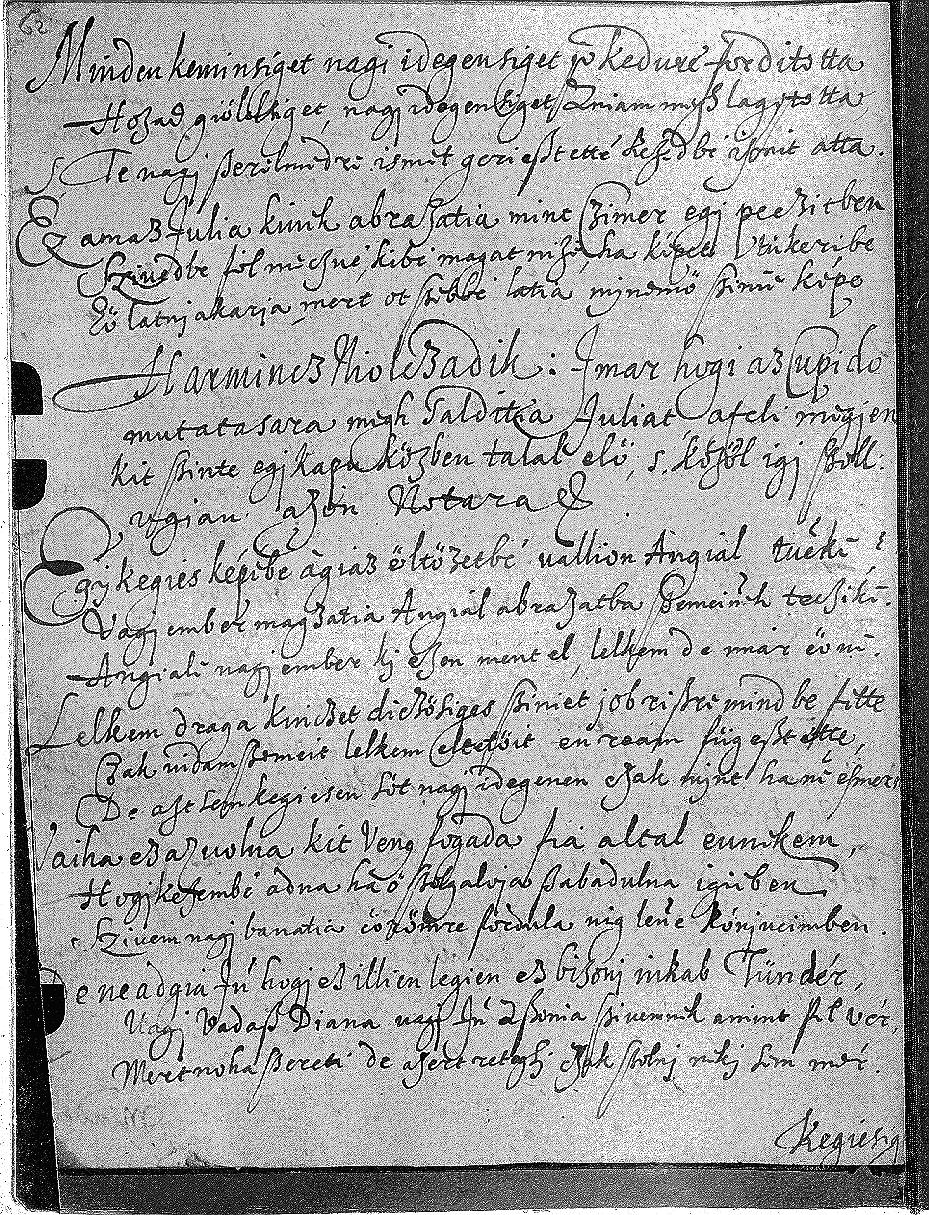 62
Minden keminsiget nagi idegensiget io kedure forditotta
Hozad giölöseget, nagj idegensiget, Aniam megh lagÿtotta
S Te nagj szerelmedre ismet geriesztette kezedbe isonit atta.
Ez amaz Julia kinik abrazatia mint Czimer egj peczitben
Szivedbe föl meczue, kibe magat nizi, ha kepet tükeribe
Eö latnj akarja mert ot szebbe latia mynemö szinü kepe
Harmincz Niolczadik: Imar hogi az Cupido
mutatasara megh Taldittia Juliat afeli megjen
kit szinte egj kapu közben talal elö, s. közöl igj szoll.
ugian azon Notara &
Egj kegies kepibe agiaz öltözetbe vallion Angial tüeki,
Vagj ember magzatia Angial abrazatba szemeinek teczik.
Angiali nagj ember kj ezen ment el, lelkem de mar eö ni.
Lelkem draga kinczet diczösiges sziniet job riszre mind be fitte
Czak vidam szemeit lelkem eltetöit en ream függesztötte,
De azt sem kegiesen söt nagj idegenen czak mint ha ne esmer
Vaiha ez az volna kit Venus fogada fia altal ennekem,
Hogj kezembe adna ha ö szolgaloja szabadulna igiiben
Szivem nagj banatia eörömre fordula nig lene könjueimben.
De ne adgia Iu hogj ez illien legien ez bizonj inkab Tündér,
Vagj Vadasz Diana vagj Iu Aszonia szivemnik amint fil vér,
Mert noha szereti de azert retegh czak szolnj nikj sem mer.
Kegiesig